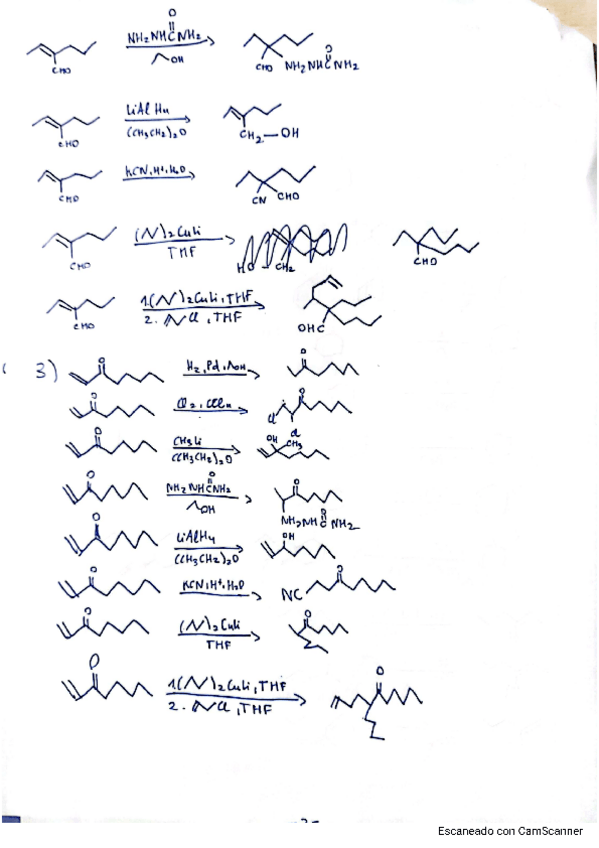 O
NH2NHCNH2
OH
CHO
CHO NH2NHCNH2
O
LiAlH4
(CH3CH2)2O
CHO
CH2—OH
KCN, H+, H2O
CHO
CN CHO
( )2CuLi
THF
CHO
HO CH2
CHO
1( )2CuLi, THF
2. Cl, THF
CHO
OHC
3)
O
H2, Pd, OH
O
O
Cl2, CCl4
O
Cl
Cl
O
CH3Li
(CH3CH2)2O
OH CH3
O
NH2NHCNH2
O
OH
O
NH2NHCNH2
O
O
LiAlH4
(CH3CH2)2O
OH
O
KCN, H+, H2O
NC
O
O
( )2CuLi
THF
O
O
1( )2CuLi, THF
2. Cl, THF
O
Escaneado con CamScanner